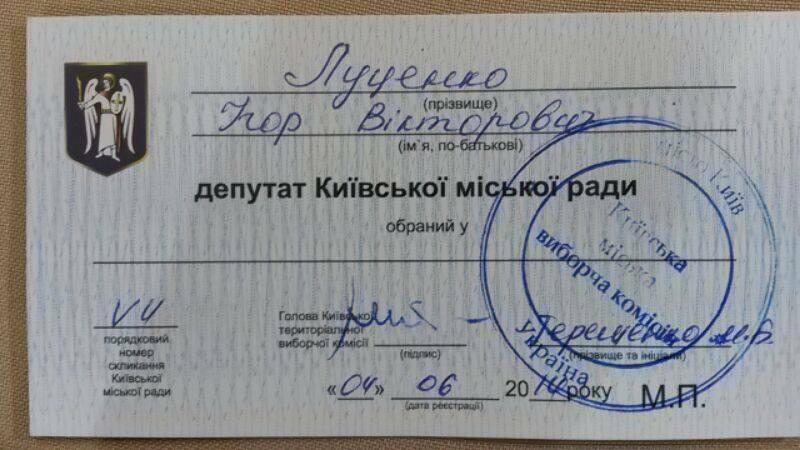 Луценко
(прізвище)
Ігор Вікторович
(ім`я, по-батькові)
депутат Київської міської ради
обраний у
VII
порядковий
номер
скликання
Київської
міської ради
Голова Київської
територіальної
виборчої комісії
(підпис)
Терещенко М.Б.
(прізвище та ініціали)
«04» 06 2014 року
(дата реєстрації)
М.П.
місто Київ
Київська
міська
виборча комісія
Україна